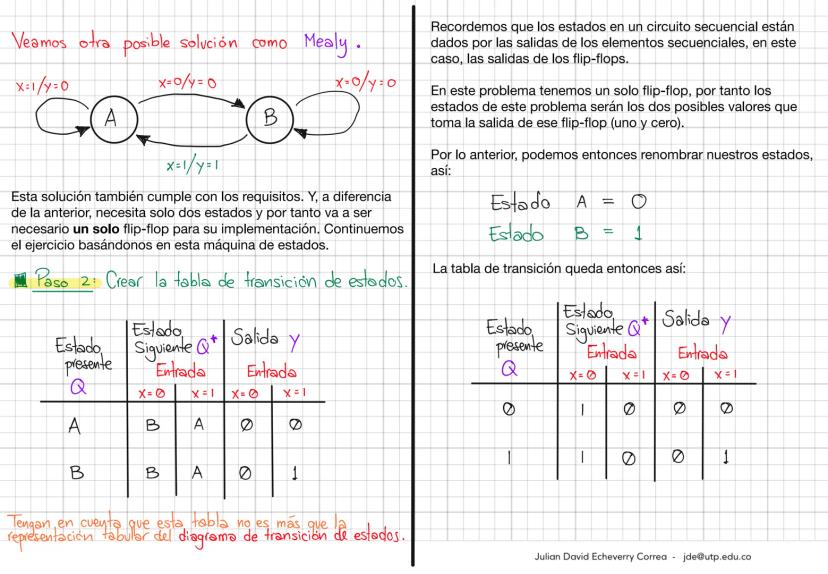 Veamos otra posible solución como Mealy.
x=1/y=0
x=0/y=0
x=0/y=0
A
B
x=1/y=1
Esta solución también cumple con los requisitos. Y, a diferencia
de la anterior, necesita solo dos estados y por tanto va a ser
necesario un solo flip-flop para su implementación. Continuemos
el ejercicio basándonos en esta máquina de estados.
Paso 2: Crear la tabla de transición de estados.
Estado presente Q | Estado Siguiente Q+ | Salida Y
Entrada | Entrada
x=0 | x=1 | x=0 | x=1
A | B | A | 0 | 0
B | B | A | 0 | 1
Tengan en cuenta que esta tabla no es más que la
representación tabular del diagrama de transición de estados.
Recordemos que los estados en un circuito secuencial están
dados por las salidas de los elementos secuenciales, en este
caso, las salidas de los flip-flops.
En este problema tenemos un solo flip-flop, por tanto los
estados de este problema serán los dos posibles valores que
toma la salida de ese flip-flop (uno y cero).
Por lo anterior, podemos entonces renombrar nuestros estados,
así:
Estado A = 0
Estado B = 1
La tabla de transición queda entonces así:
Estado presente Q | Estado Siguiente Q+ | Salida Y
Entrada | Entrada
x=0 | x=1 | x=0 | x=1
0 | 1 | 0 | 0 | 0
1 | 1 | 0 | 0 | 1
Julian David Echeverry Correa - jde@utp.edu.co